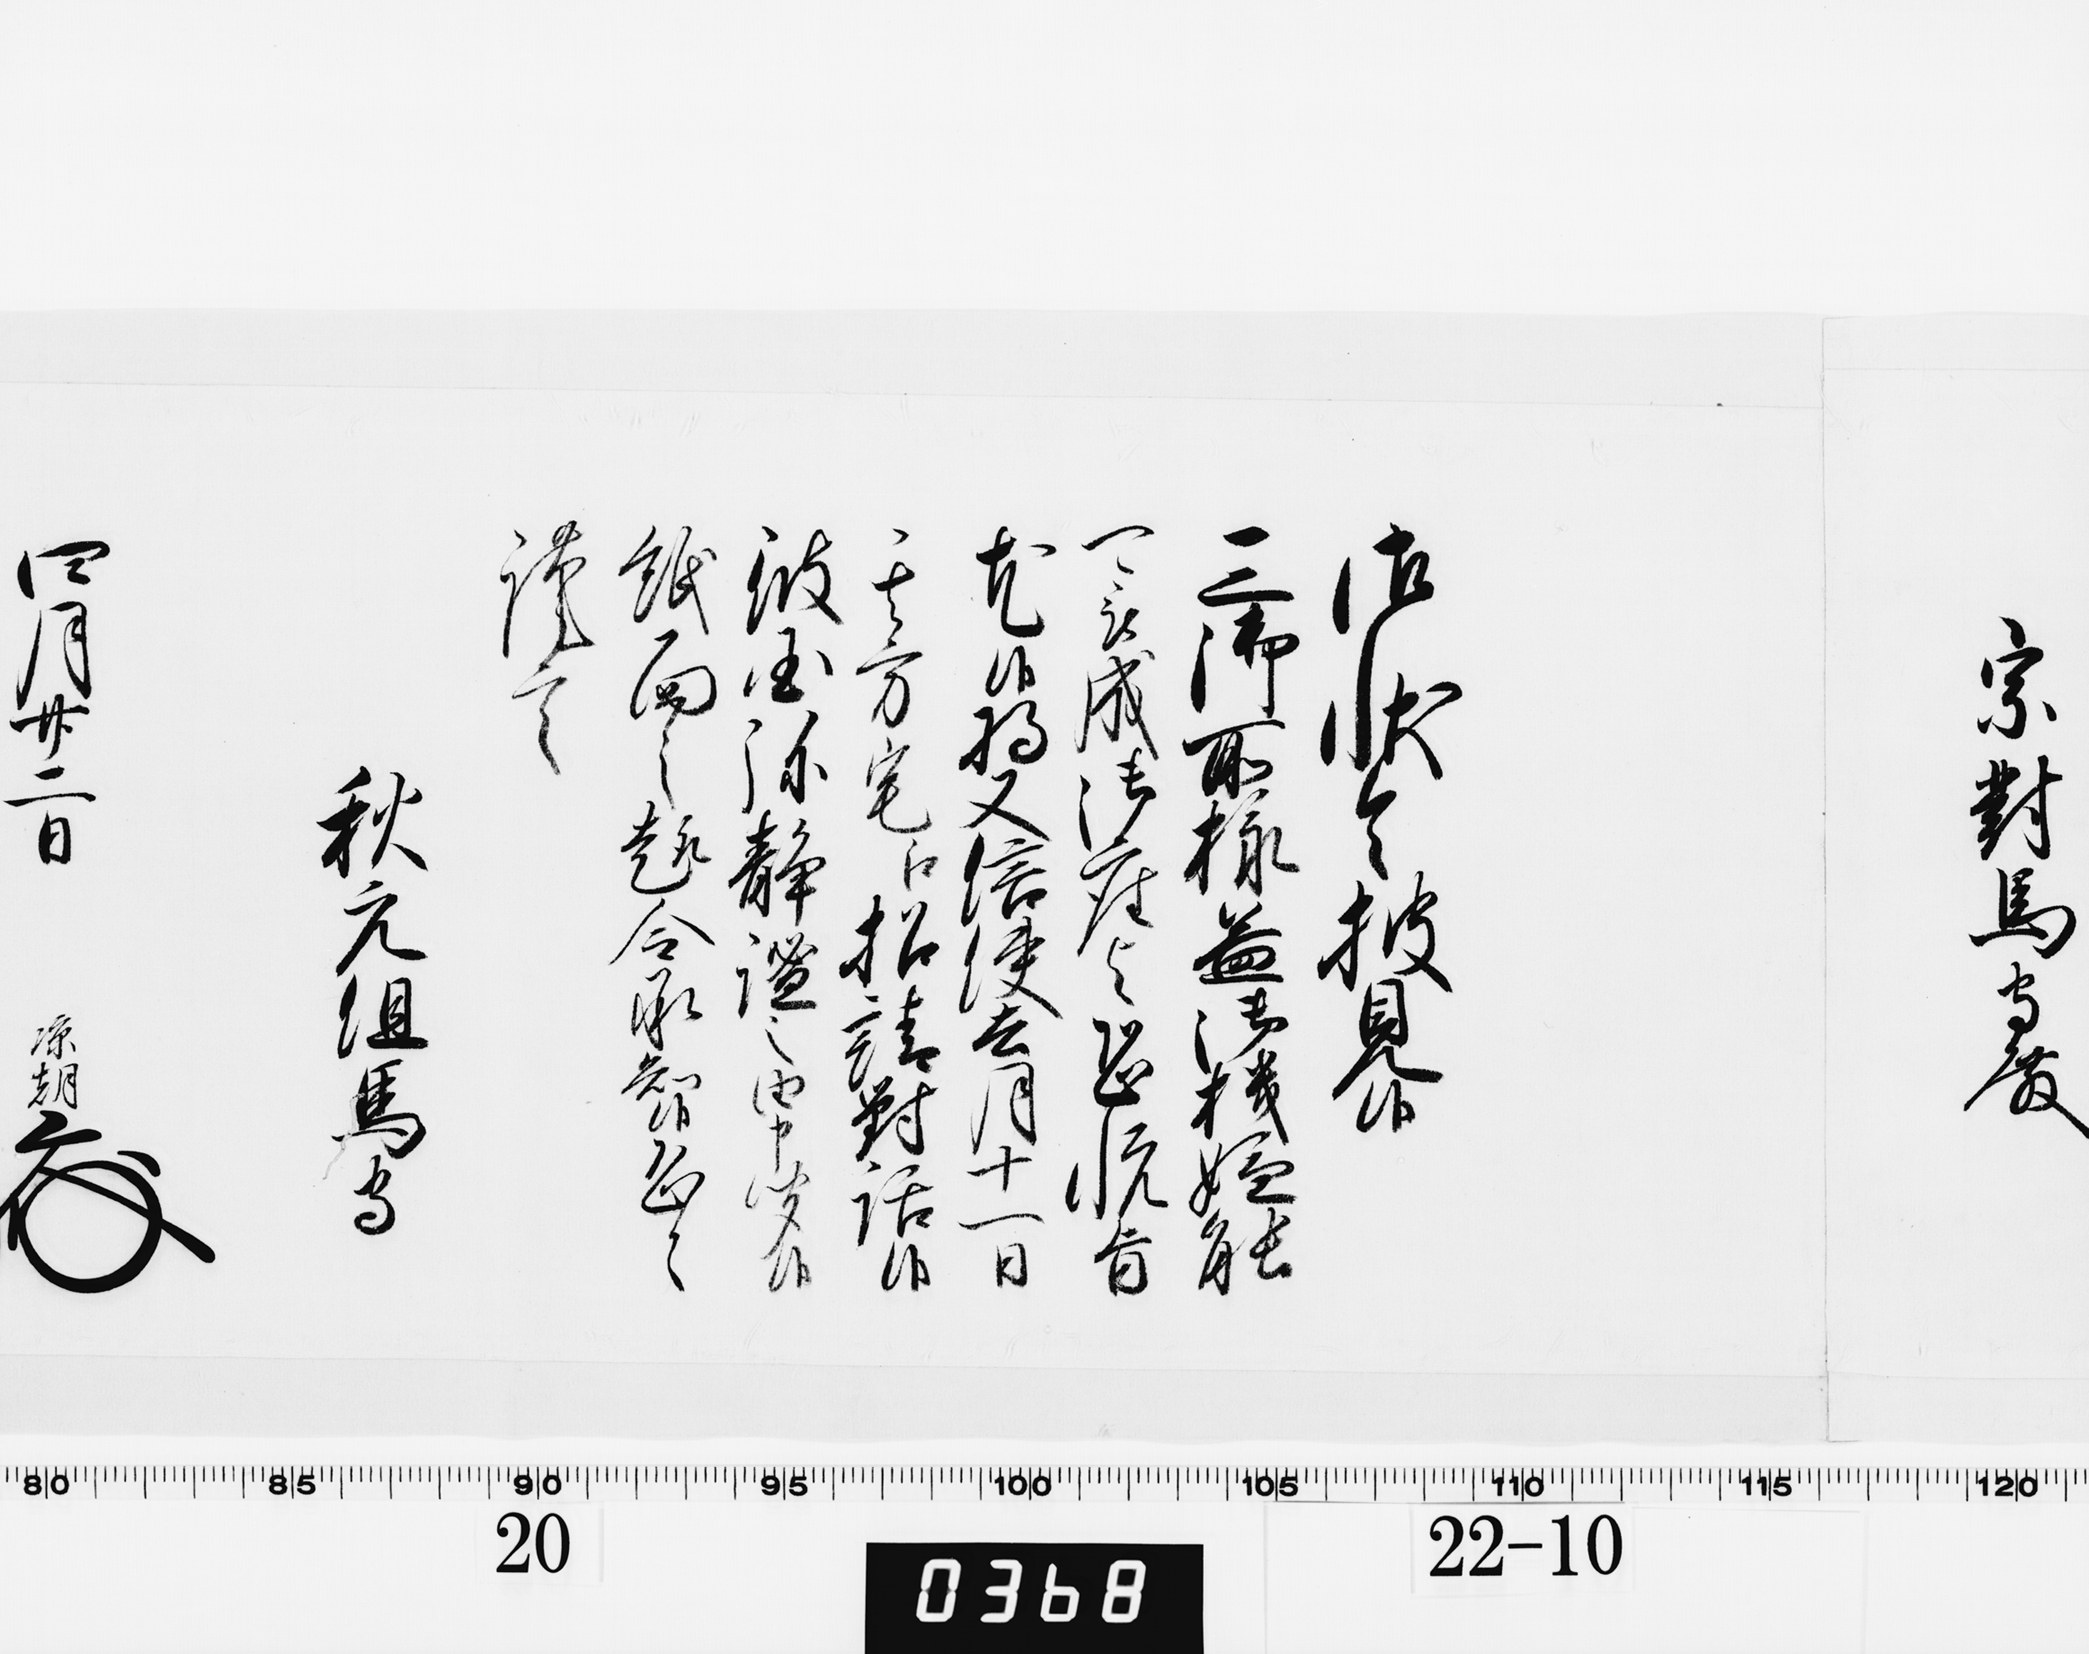 宗對馬守殿
御状令披見候
三御所様益御機嫌能
被成御座与恐悦旨
尤候将又信使去月十一日
其方宅江招請對話候
彼国弥静謐之由申候
紙面之趣令承知候恐々
謹言
秋元但馬守
四月廿二日
凉朝
80 85 90 95 100 105 110 115 120
20
22-10
0368